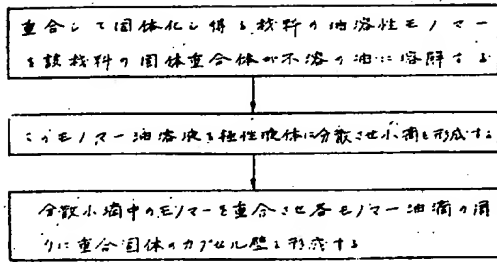 重合して固体化し得る材料の油溶性モノマー
を該材料の固体重合体が不溶の油に溶解する
このモノマー油溶液を極性液体に分散させ小滴を形成する
分散小滴中のモノマーを重合させ各モノマー油滴の周
りに重合固体のカプセル壁を形成する